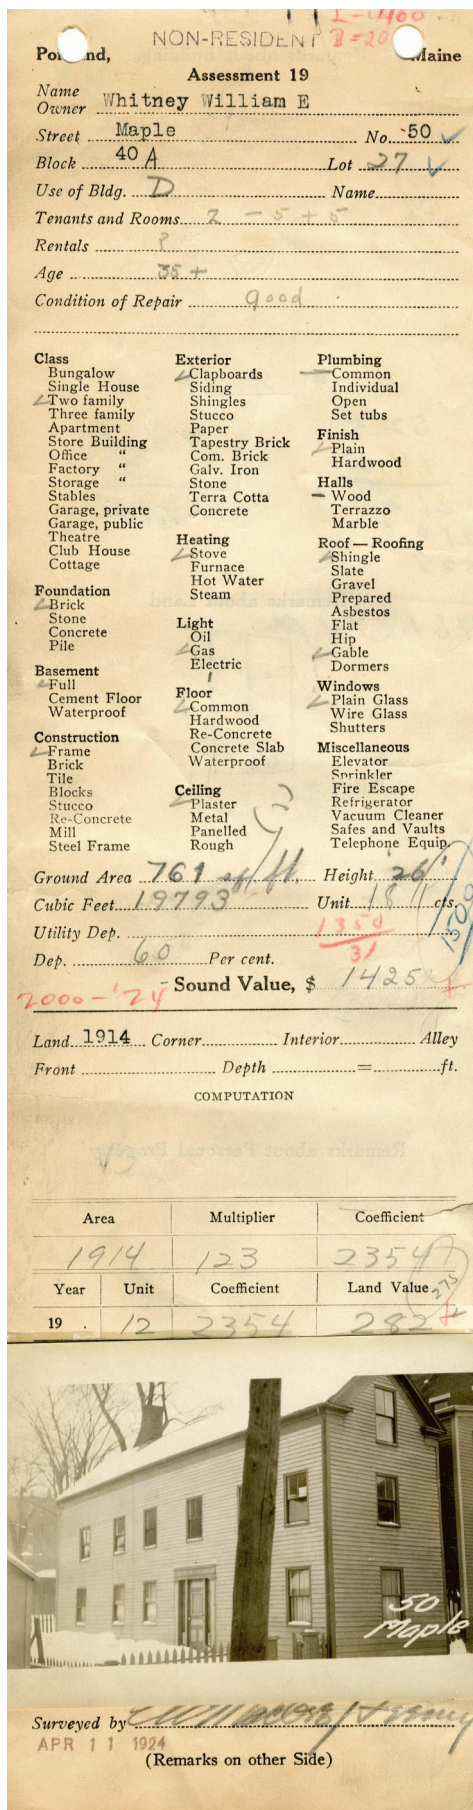 L-1400
NON-RESIDENT B=20
Portland, Maine
Assessment 19
Name
Owner Whitney William E
Street Maple No. 50
Block 40 A Lot 27
Use of Bldg. D Name
Tenants and Rooms 2 - 5 + 5
Rentals ?
Age 35 +
Condition of Repair good
Class
Bungalow
Single House
Two family
Three family
Apartment
Store Building
Office "
Factory "
Storage "
Stables
Garage, private
Garage, public
Theatre
Club House
Cottage
Foundation
Brick
Stone
Concrete
Pile
Basement
Full
Cement Floor
Waterproof
Construction
Frame
Brick
Tile
Blocks
Stucco
Re-Concrete
Mill
Steel Frame
Exterior
Clapboards
Siding
Shingles
Stucco
Paper
Tapestry Brick
Com. Brick
Galv. Iron
Stone
Terra Cotta
Concrete
Heating
Stove
Furnace
Hot Water
Steam
Light
Oil
Gas
Electric
Floor
Common
Hardwood
Re-Concrete
Concrete Slab
Waterproof
Ceiling
Plaster
Metal
Panelled
Rough
Plumbing
Common
Individual
Open
Set tubs
Finish
Plain
Hardwood
Halls
Wood
Terrazzo
Marble
Roof — Roofing
Shingle
Slate
Gravel
Prepared
Asbestos
Flat
Hip
Gable
Dormers
Windows
Plain Glass
Wire Glass
Shutters
Miscellaneous
Elevator
Sprinkler
Fire Escape
Refrigerator
Vacuum Cleaner
Safes and Vaults
Telephone Equip.
Ground Area 761 sq ft. Height 26'
Cubic Feet 19793 Unit 18 cts.
1500
Utility Dep. 1350
31
Dep. 60 Per cent.
Sound Value, $ 1425
2000-'24
Land 1914 Corner Interior Alley
Front Depth = ft.
COMPUTATION
Area Multiplier Coefficient
1914 123 2354
Year Unit Coefficient Land Value 275
19 12 2354 282
50
Maple
Surveyed by
APR 11 1924
(Remarks on other Side)